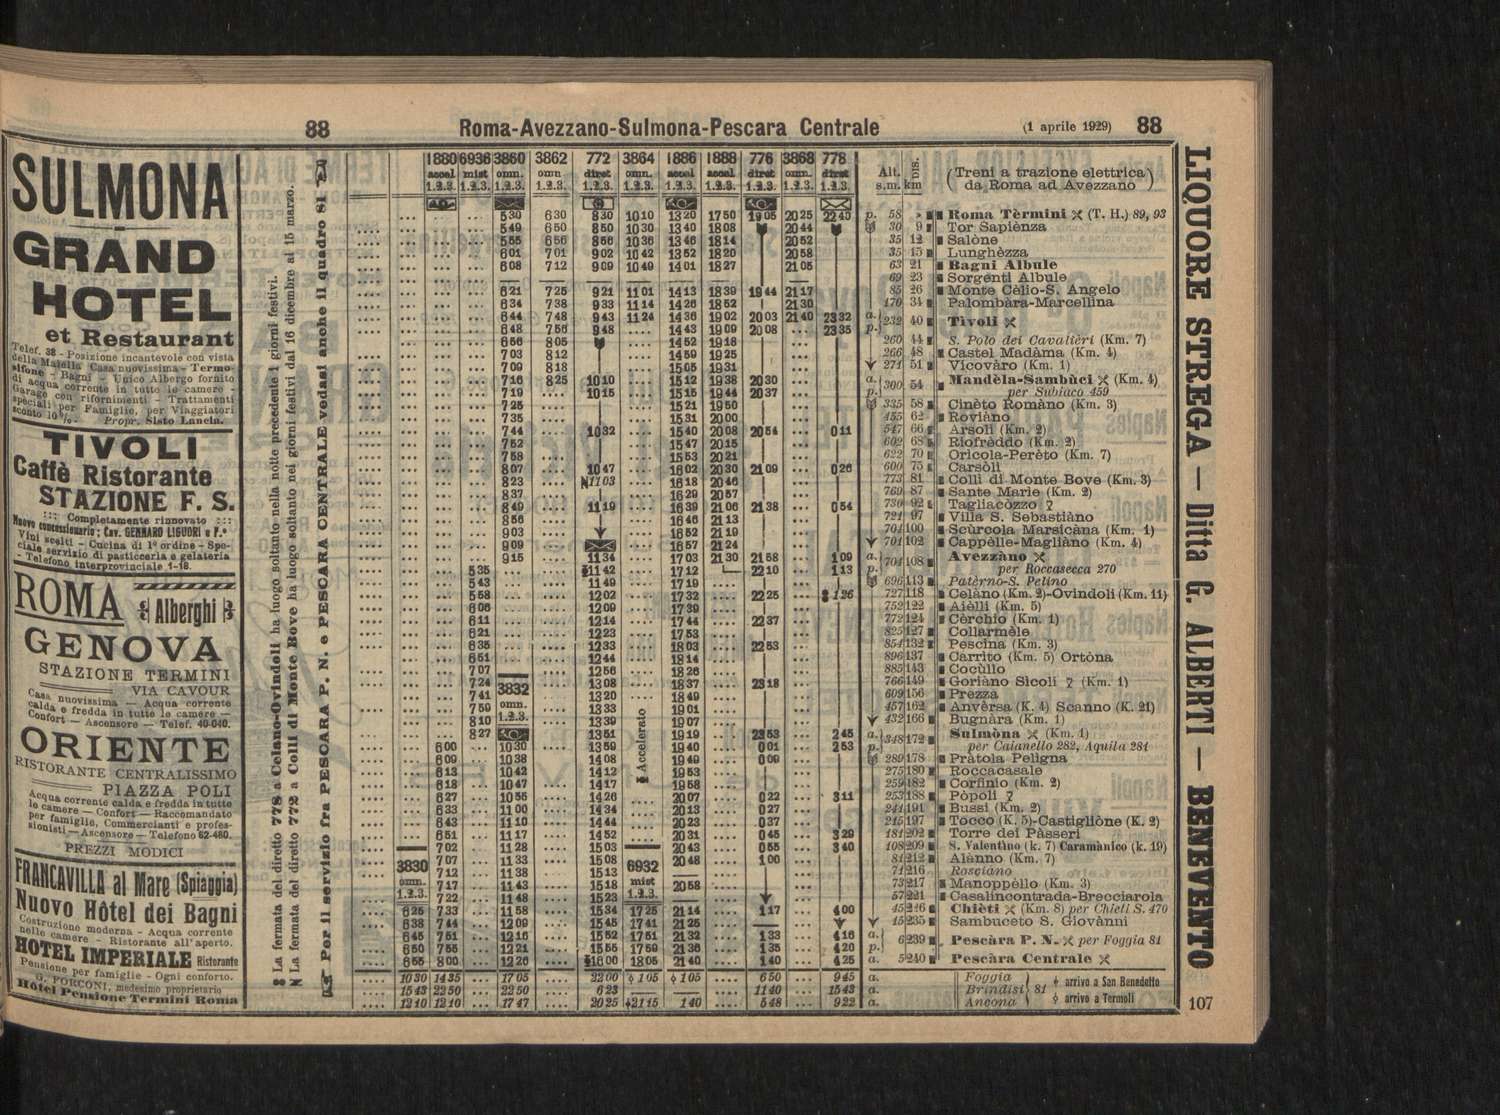 88 Roma-Avezzano-Sulmona-Pescara Centrale (1 aprile 1929) 88
SULMONA
GRAND
HOTEL
et Restaurant
Telef. 38 - Posizione incantevole con vista
della Maiella Casa nuovissima - Termo-
sifone - Bagni - Unico Albergo fornito
di acqua corrente in tutte le camere -
Garage con rifornimenti - Trattamenti
speciali per Famiglie, per Viaggiatori
sconto 10%. Propr. Sisto Lancia.
TIVOLI
Caffè Ristorante
STAZIONE F. S.
::: Completamente rinnovato :::
Nuovo concessionario: Cav. GENNARO LIGUORI e F.°
Vini scelti - Cucina di 1° ordine - Spe-
ciale servizio di pasticceria e gelateria
- Telefono interprovinciale 1-18.
ROMA Alberghi
GENOVA
STAZIONE TERMINI
VIA CAVOUR
Casa nuovissima — Acqua corrente
calda e fredda in tutte le camere —
Confort — Ascensore — Telef. 40-040.
ORIENTE
RISTORANTE CENTRALISSIMO
PIAZZA POLI
Acqua corrente calda e fredda in tutte
le camere — Confort — Raccomandato
per famiglie, Commercianti e profes-
sionisti — Ascensore — Telefono 62-460.
PREZZI MODICI
FRANCAVILLA al Mare (Spiaggia)
Nuovo Hôtel dei Bagni
Costruzione moderna - Acqua corrente
nelle camere - Ristorante all'aperto.
HOTEL IMPERIALE Ristorante
Pensione per famiglie - Ogni conforto.
G. PORCONI, medesimo proprietario
Hôtel Pensione Termini Roma
8 La fermata del diretto 778 a Celano-Ovindoli ha luogo soltanto nella notte precedente i giorni festivi.
N La fermata del diretto 772 a Colli di Monte Bove ha luogo soltanto nei giorni festivi dal 16 dicembre al 15 marzo.
Per il servizio fra PESCARA P. N. e PESCARA CENTRALE vedasi anche il quadro 81
1880 6936 3860 3862 772 3864 1886 1888 776 3868 778 Alt. DIS. (Treni a trazione elettrica
accel mist omn. omn diret omn. accel accel diret omn. diret s.m. km da Roma ad Avezzano)
1.2.3. 1.2.3. 1.2.3. 1.2.3. 1.2.3. 1.2.3. 1.2.3. 1.2.3. 1.2.3. 1.2.3. 1.2.3.
530 630 830 1010 1320 1750 1905 2025 2240 p. 58 » Roma Tèrmini (T. H.) 89, 93
549 650 850 1030 1340 1808 2044 30 9 Tor Sapiènza
555 656 856 1036 1346 1814 2052 35 12 Salòne
601 701 902 1042 1352 1820 2058 35 15 Lunghèzza
608 712 909 1049 1401 1827 2105 63 21 Bagni Albule
69 23 Sorgenti Albule
621 725 921 1101 1413 1839 1944 2117 85 26 Monte Cèlio-S. Angelo
634 738 933 1114 1426 1852 2130 170 34 Palombàra-Marcellina
644 748 943 1124 1436 1902 2003 2140 2332 a. 232 40 Tivoli
648 756 948 1443 1909 2008 2335 p.
656 805 1452 1918 260 44 S. Polo dei Cavalièri (Km. 7)
703 812 1459 1925 266 48 Castel Madàma (Km. 4)
709 818 1505 1931 271 51 Vicovàro (Km. 1)
716 825 1010 1512 1938 2030 a. 300 54 Mandèla-Sambùci (Km. 4)
719 1015 1515 1944 2037 p. per Subiaco 459
725 1521 1950 335 58 Cinèto Romàno (Km. 3)
735 1531 2000 455 62 Roviàno
744 1032 1540 2008 2054 011 547 66 Arsoli (Km. 2)
752 1547 2015 602 68 Riofrèddo (Km. 2)
758 1553 2021 622 70 Oricola-Perèto (Km. 7)
807 1047 1602 2030 2109 026 600 75 Carsòli
823 N1103 1618 2046 773 81 Colli di Monte Bove (Km. 3)
837 1629 2057 769 87 Sante Marie (Km. 2)
849 1119 1639 2106 2138 054 730 92 Tagliacòzzo
856 1646 2113 721 97 Villa S. Sebastiàno
903 1652 2119 701 100 Scùrcola Marsicàna (Km. 1)
909 1657 2124 701 102 Cappèlle-Magliàno (Km. 4)
915 1134 1703 2130 2158 109 a. 701 108 Avezzàno
535 1142 1712 2210 113 p. per Roccasecca 270
543 1149 1719 696 113 Patèrno-S. Pelino
558 1202 1732 2225 8 126 727 118 Celàno (Km. 2)-Ovindoli (Km. 11)
606 1209 1739 752 122 Aièlli (Km. 5)
611 1214 1744 2237 772 124 Cèrchio (Km. 1)
621 1223 1753 825 127 Collarmèle
635 1233 1803 2253 854 132 Pescìna (Km. 3)
651 1244 1814 896 137 Carrito (Km. 5) Ortòna
707 1256 1826 885 143 Cocùllo
724 3832 1308 1837 2318 766 149 Goriàno Sìcoli (Km. 1)
741 omn. 1320 1849 609 156 Prezza
759 1.2.3. 1333 1901 457 162 Anvèrsa (K. 4) Scanno (K. 21)
810 1339 Accelerato 1907 432 166 Bugnàra (Km. 1)
827 1351 1919 2353 245 a. 348 172 Sulmòna (Km. 1)
600 1030 1359 1940 001 253 p. per Caianello 282, Aquila 281
609 1038 1408 1949 009 289 178 Pràtola Peligna
613 1042 1412 1953 275 180 Roccacasale
618 1047 1417 1958 259 182 Corfinio (Km. 2)
627 1055 1426 2007 022 311 253 188 Pòpoli
633 1100 1434 2013 027 241 191 Bussi (Km. 2)
643 1110 1444 2023 037 215 197 Tocco (K. 5)-Castigliòne (K. 2)
651 1117 1452 2031 045 329 181 202 Torre dei Pàsseri
702 1128 1503 2043 055 340 108 209 S. Valentino (k. 7) Caramànico (k. 19)
3830 707 1133 1508 6932 2048 100 81 212 Alànno (Km. 7)
omn. 712 1138 1513 mist 71 216 Rosciano
1.2.3. 717 1143 1518 1.2.3. 2058 73 217 Manoppèllo (Km. 3)
722 1148 1523 57 221 Casalincontrada-Brecciarola
625 733 1158 1534 1725 2114 117 400 45 226 Chièti (Km. 8) per Chieti S. 470
638 744 1209 1545 1741 2125 15 235 Sambuceto S. Giovànni
645 751 1216 1552 1751 2132 133 416 a. 6 239 Pescàra P. N. per Foggia 81
650 755 1221 1555 1759 2136 135 420 p.
655 800 1226 1600 1805 2140 140 425 a. 5 240 Pescàra Centrale
1030 1435 1705 2200 105 105 650 945 a. Foggia
1543 2250 2250 623 1140 1543 a. Brindisi 81
1210 1210 1747 2025 2115 140 548 922 a. Ancona
arrivo a San Benedetto
arrivo a Termoli
LIQUORE STREGA — Ditta G. ALBERTI — BENEVENTO
107